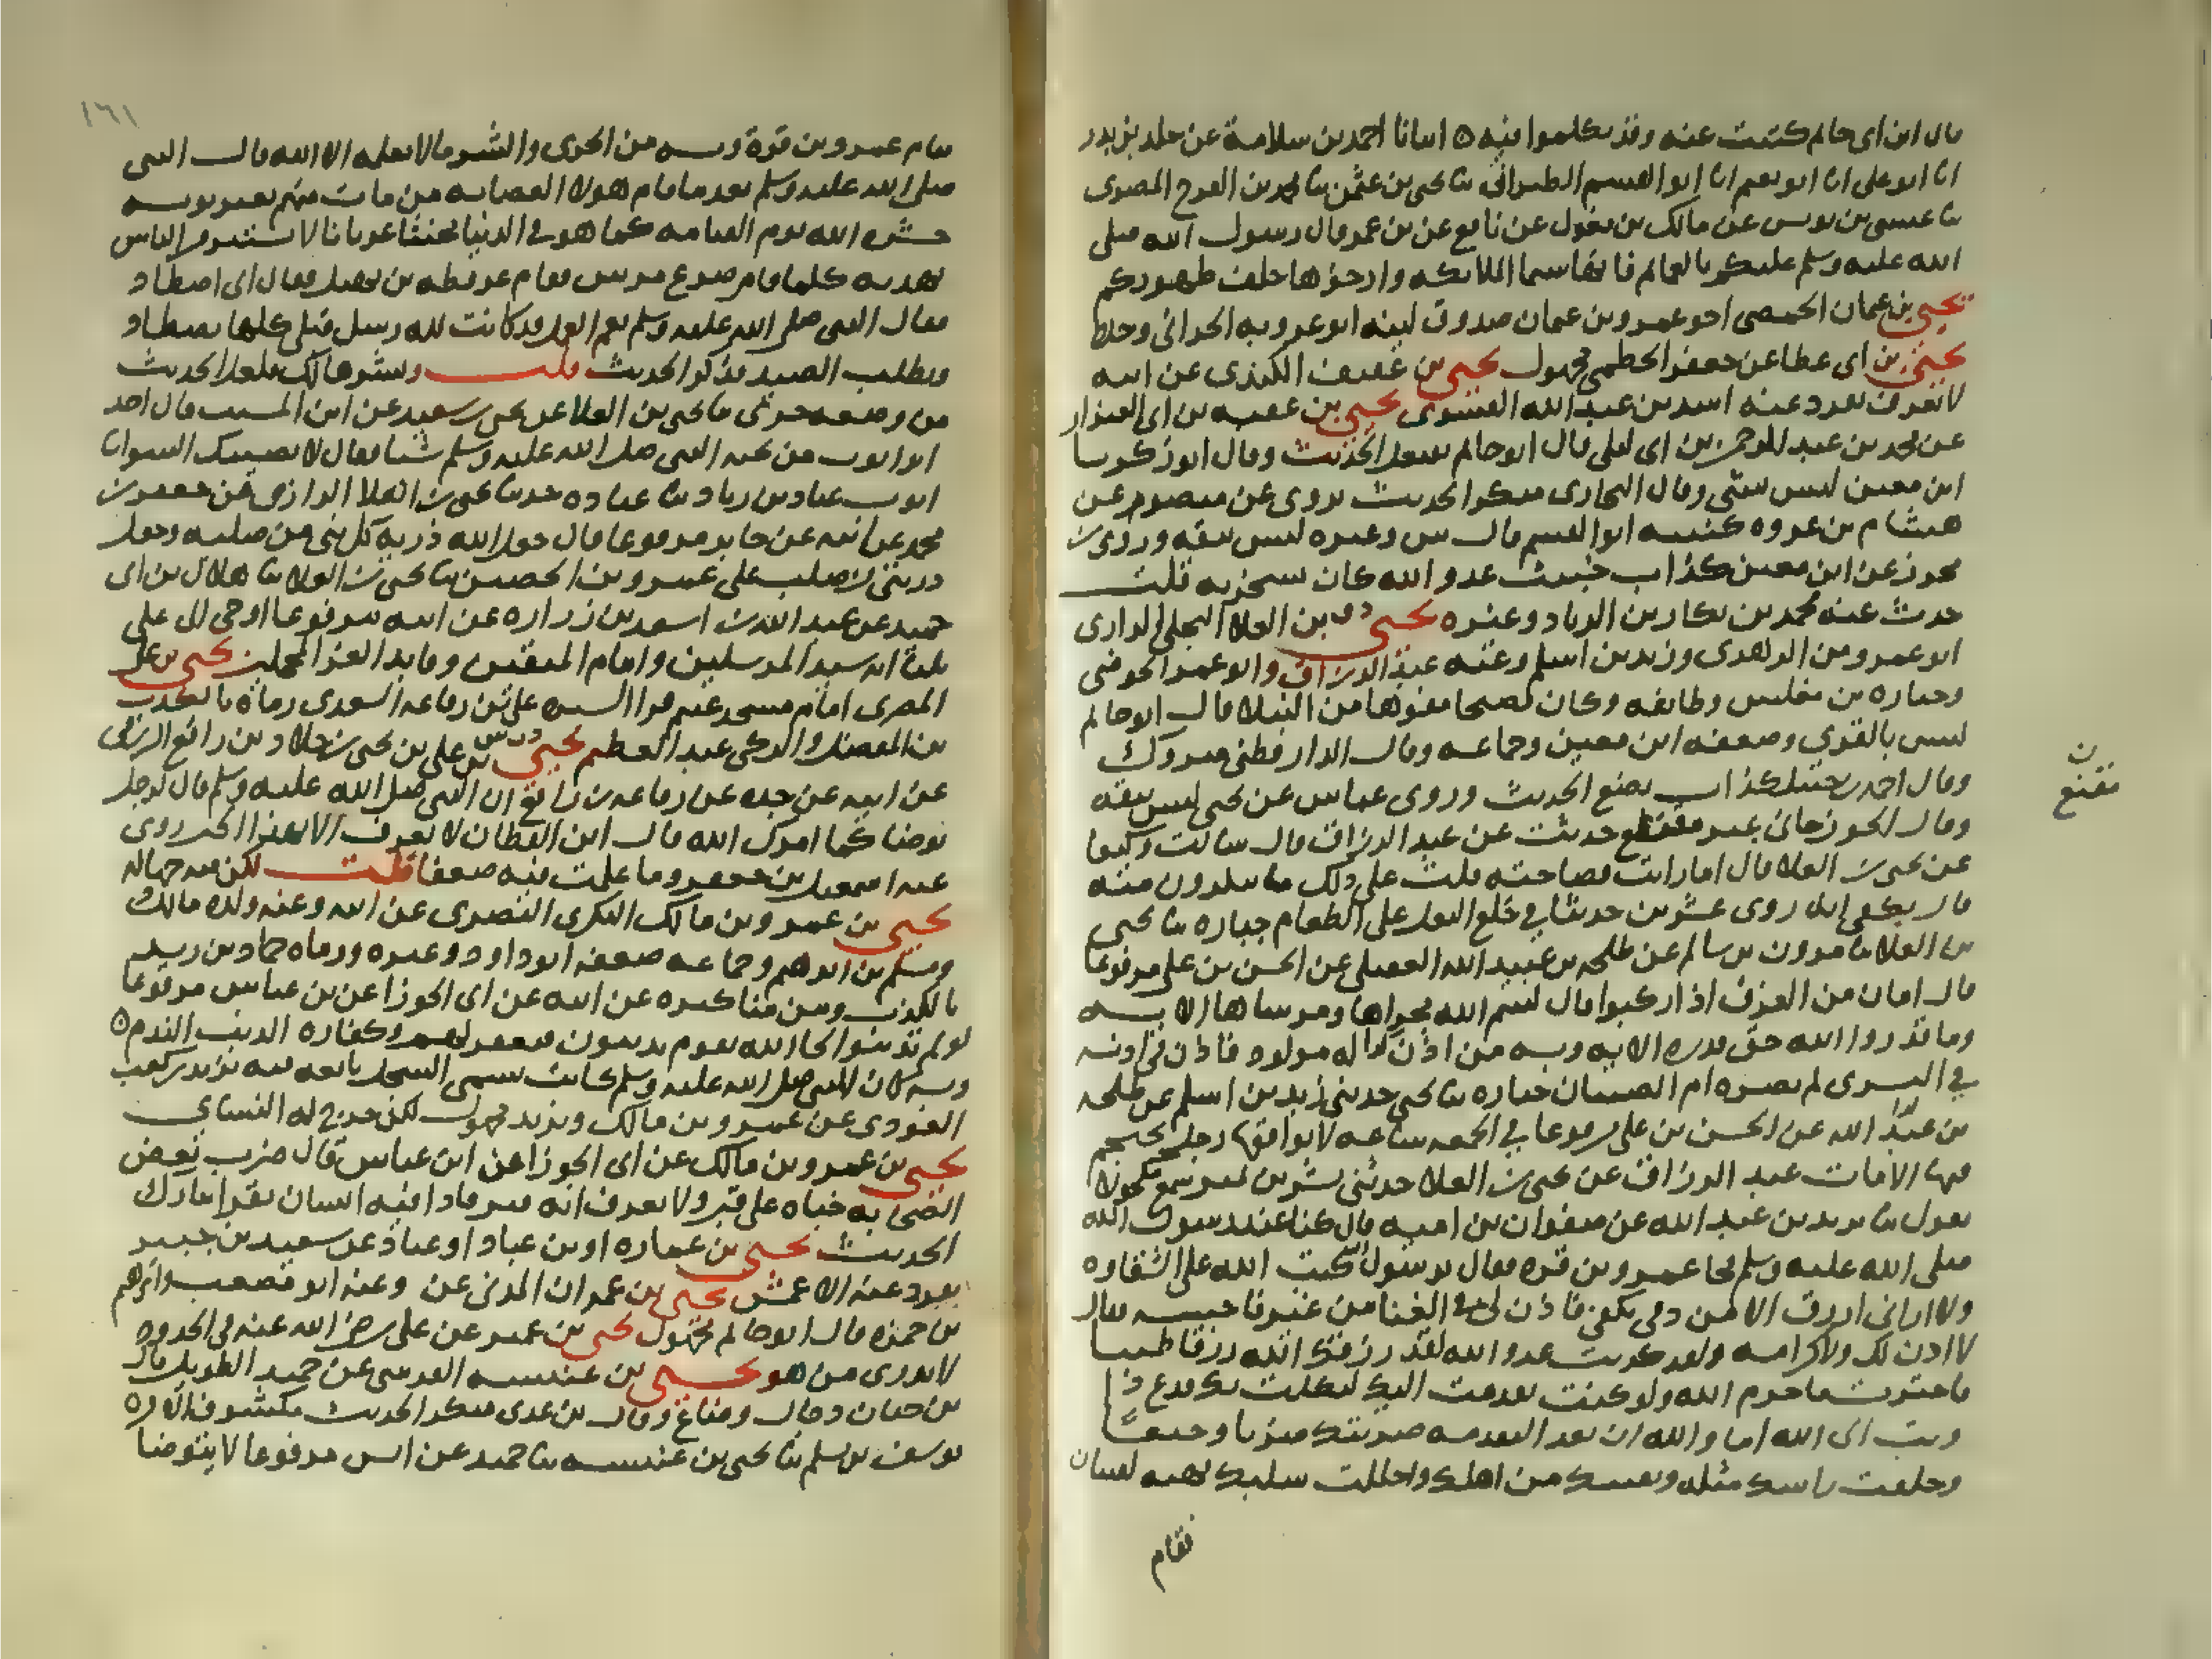 قال ابن ابي حاتم كتبت عنه وقد تكلموا فيه ه انبانا احمد بن سلامة عن خلد بن بدر
انا ابو علي انا ابو نعيم انا ابو القسم الطبراني ثنا يحيى بن عثمن ثنا محمد بن الفرج المصري
ثنا عيسى بن يونس عن مالك بن مغول عن نافع عن بن عمر قال رسول الله صلى
الله عليه وسلم عليكم بالعمائم فانها سيما الملائكه وارخوها خلف ظهوركم
يحيى بن عثمان الحمصي اخو عمرو بن عثمان صدوق لينه ابو عروبه الحراني
يحيى بن ابي عطا عن جعفر الخطمي مجهول يحيى بن عفيف الكندي عن ابيه
لا يعرف تفرد عنه اسد بن عبد الله القسري يحيى بن عقبه بن ابي العيزار
عن محمد بن عبد الرحمن بن ابي ليلى قال ابو حاتم يفتعل الحديث وقال ابو زكريا
ابن معين ليس بشي وقال البخاري منكر الحديث يروي عن منصور عن
هشام بن عروه كنيته ابو القسم قال س وغيره ليس بثقه وروى بن
محرز عن ابن معين كذاب خبيث عدو الله كان يسخر به قلت
حدث عنه محمد بن بكار بن الريان وغيره يحيى د ق بن العلا البجلي الرازي
ابو عمرو عن الزهري وزيد بن اسلم وعنه عبد الرزاق وابو عمر الحوضي
وجباره بن مغلس وطائفه وكان فصيحا مفوها من النبلا قال ابو حاتم
ليس بالقوي وضعفه ابن معين وجماعه وقال الدارقطني متروك
وقال احمد بن حنبل كذاب يضع الحديث وروى عباس عن يحيى ليس بثقه
وقال الجوزجاني غير مقنع حدثت عن عبد الرزاق قال سالت وكيعا
عن يحيى بن العلا قال اما رايت فصاحته قلت على ذلك ما تنكرون منه
قال يكفي انه روى عشرين حديثا في خلع النعل على الطعام جباره ثنا يحيى
بن العلا ثنا مروان بن سالم عن طلحه بن عبيد الله العقيلي عن الحسن بن علي مرفوعا
قال امان من الغرق اذا ركبوا قال بسم الله مجراها ومرساها الايه
وما قدروا الله حق قدره الايه وبه من اذن له مولود فاذن في اذنه
في اليسرى لم يضره ام الصبيان جباره ثنا يحيى حدثني زيد بن اسلم عن طلحه
بن عبد الله عن الحسن بن علي مرفوعا في الجمعه ساعه لا يوافقها رجل يحتجم
فيها الا مات عبد الرزاق عن يحيى بن العلا حدثني بشر بن نمير سمع مكحولا
يقول ثنا يزيد بن عبد الله عن صفوان بن اميه قال كنا عند رسول الله
صلى الله عليه وسلم فجا عمرو بن قره فقال يرسول الله كتبت الله علي الشقاوه
ولا اراني ارزق الا من دفي بكفي فاذن لي في الغنا من غير فاحشه فقال
لا اذن لك ولا كرامه ولقد كذبت عدو الله لقد رزقك الله رزقا طيبا
فاخترت ما حرم الله ولو كنت تقدمت اليك لنكلت بك قدع ذا
وتب الى الله اما والله ان بعد التقدمه ضربتك ضربا وجيعا
وحلقت راسك مثله ونفيتك من اهلك واحللت سلبك نهبه لفتيان
فقام
ن
مقنع
١٦١
فقام عمرو بن قرة وبه من الخزي والشر ما لا يعلمه الا الله قال النبي
صلى الله عليه وسلم بعد ما قام هولا العصابه من مات منهم بغير توبه
حشره الله يوم القيامه كما هو في الدنيا مخنثا عريانا لا يستتر من الناس
بهدبه كلما قام صرع مرتين فقام عرفطه بن نهيك فقال اني اصطاد
فقال النبي صلى الله عليه وسلم نعم العمل قد كانت لله رسل قبلي كلها يصطاد
ويطلب الصيد فذكر الحديث قلت وبشر هالك فلعل الحديث
من وضعه حرمي ثنا يحيى بن العلا عن يحيى بن سعيد عن ابن المسيب قال اخذ
ابو ايوب من لحيه النبي صلى الله عليه وسلم شيا فقال لا يصيبك السو ابا
ايوب عباد بن زياد ثنا عباده حدثنا يحيى بن العلا الرازي عن جعفر بن
محمد عن ابيه عن جابر مرفوعا قال جعل الله ذرية كل نبي من صلبه وجعل
ذريتي من صلب علي عمرو بن الحصين ثنا يحيى بن العلا ثنا هلال بن ابي
حميد عن عبد الله بن اسعد بن زراره عن ابيه مرفوعا اوحي الي في علي
ثلث انه سيد المرسلين وامام المتقين وقايد الغر المحجلين يحيى بن علي
المصري امام مسجد عيثم قرا السيره على بن رفاعه السعدي رماه بالكذب
بن المفضل والزكي عبد العظيم يحيى د ت س بن علي بن يحيى بن خلاد بن رافع الزرقي
عن ابيه عن جده عن رفاعه بن رافع ان النبي صلى الله عليه وسلم قال لرجل
توضا كما امرك الله قال ابن القطان لا يعرف الا بهذا الخبر روى
عنه اسمعيل بن جعفر وما علمت فيه ضعفا قلت لكن فيه جهاله
يحيى بن عمرو بن مالك النكري البصري عن ابيه وعنه ولده مالك
ومسلم بن ابرهيم وجماعه ضعفه ابو داود وغيره ورماه حماد بن زيد
بالكذب ومن مناكيره عن ابيه عن ابي الجوزا عن بن عباس مرفوعا
لو لم تذنبوا لجا الله بقوم يذنبون فيغفر لهم وكفاره الذنب الندم ه
وبه كان للنبي صلى الله عليه وسلم كاتب يسمى السجل تابعه فيه يزيد بن كعب
العوذي عن عمرو بن مالك ويزيد مجهول لكن خرج له النساي
يحيى بن عمرو بن مالك عن ابي الجوزا عن ابن عباس قال ضرب بعض
الصحابه خباه على قبر ولا يعرف انه قبر فاذا فيه انسان يقرا تبارك
الحديث يحيى بن عماره او بن عباد او عباد عن سعيد بن جبير
تفرد عنه الاعمش يحيى بن عمران المدني عن وعنه ابو مصعب وابرهيم
بن حمزه قال ابو حاتم مجهول يحيى بن عمير عن علي رضي الله عنه في الحدود
لا يدرى من هو يحيى بن عنبسه القرشي عن حميد الطويل قال
بن حبان دجال وضاع وقال بن عدي منكر الحديث مكشوف الامر ه
يوسف بن مسلم ثنا يحيى بن عنبسه ثنا حميد عن انس مرفوعا لا يتوضا